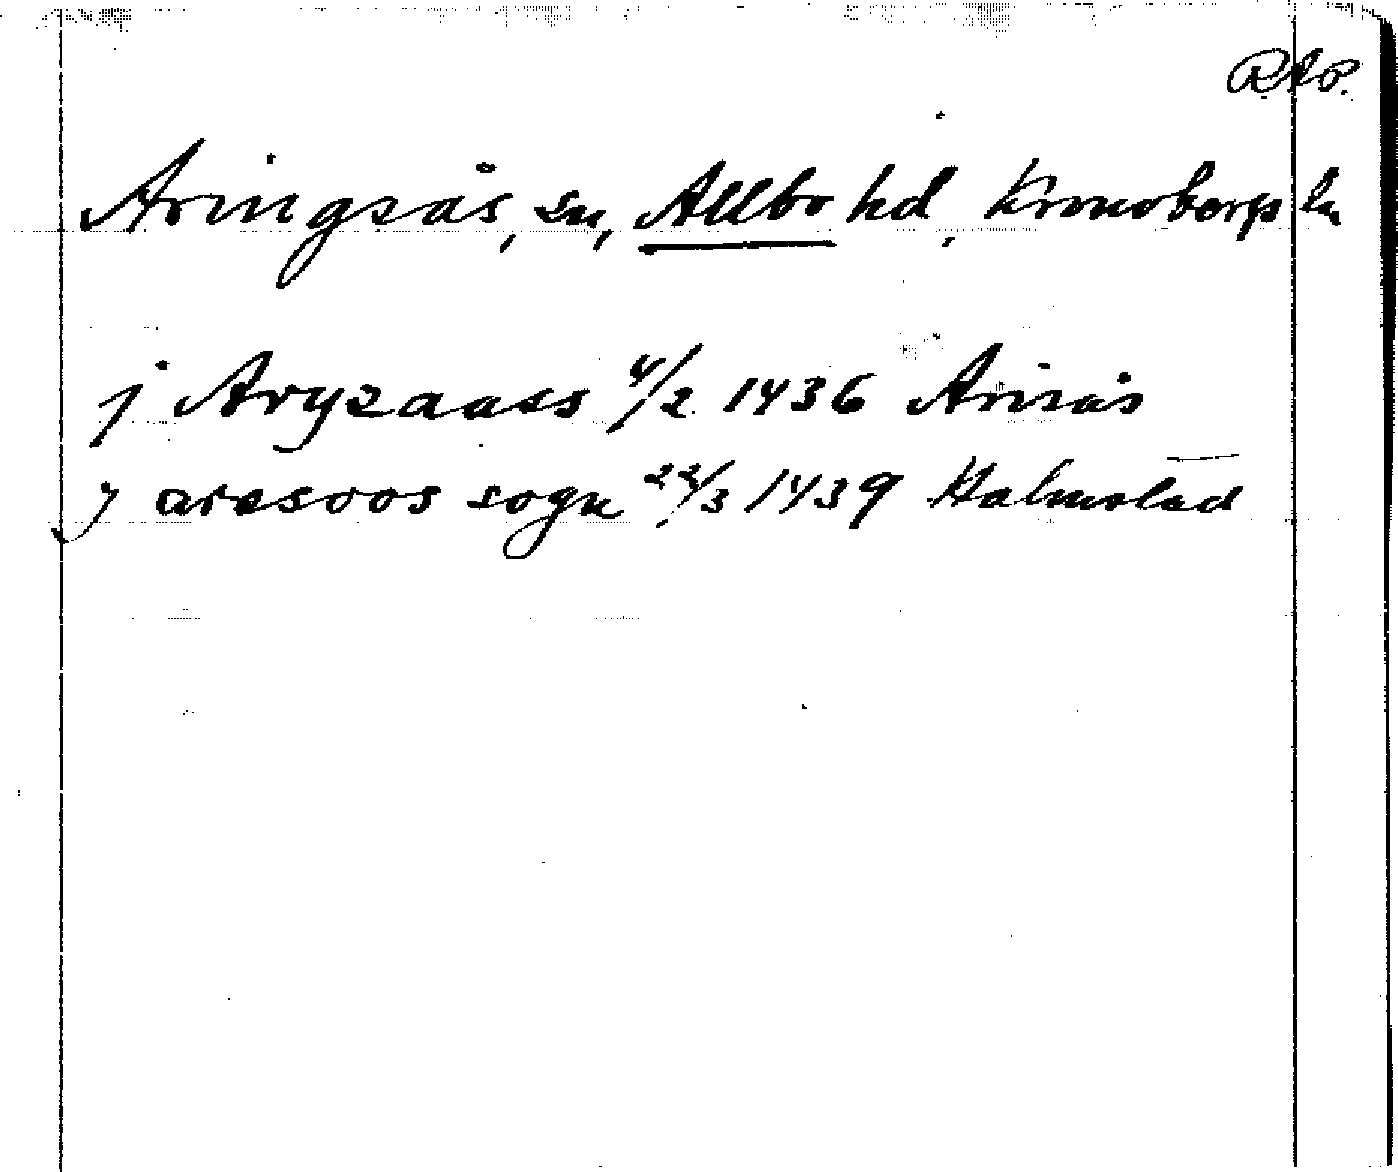 RAP.
Aringsås, sn, Allbo hd, Kronobergs ln
j Aryzaass 4/2 1436 Arisås
y aresoos sogn 22/3 1439 Halmstad